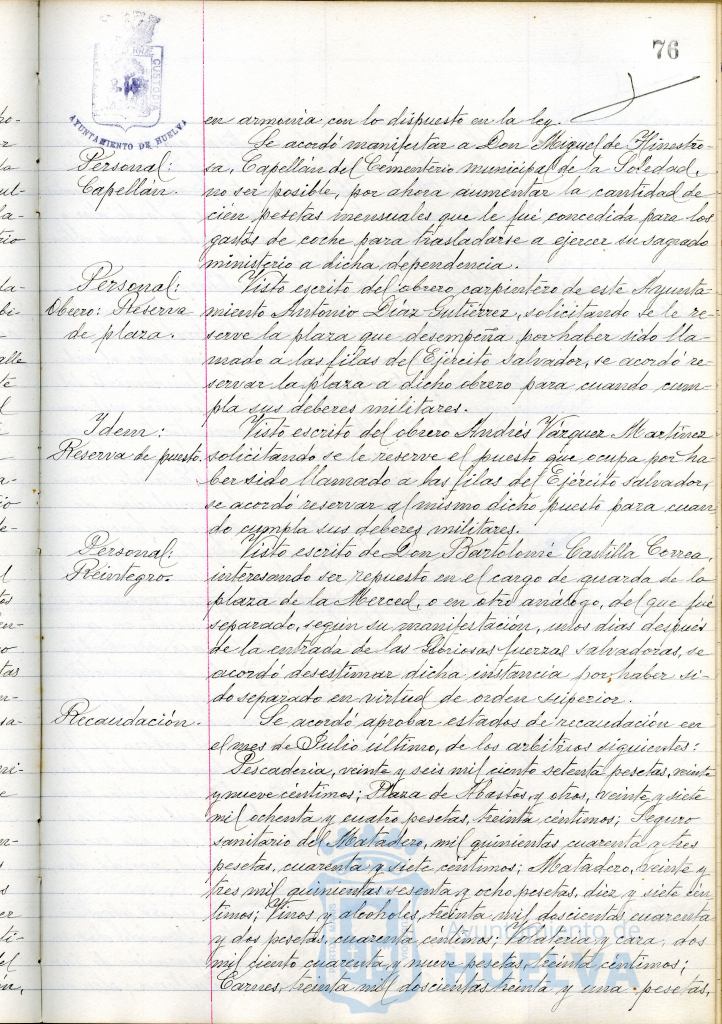 76
AYUNTAMIENTO DE HUELVA
CUSTODIA
en armonía con lo dispuesto en la ley.
Personal:
Capellán.
Se acordó manifestar a Don Miguel de Hinestro-
sa, Capellán del Cementerio municipal de la Soledad,
no ser posible, por ahora aumentar la cantidad de
cien pesetas mensuales que le fué concedida para los
gastos de coche para trasladarse a ejercer su sagrado
ministerio a dicha dependencia.
Personal:
Obrero: Reserva
de plaza.
Visto escrito del obrero carpintero de este Ayunta-
miento Antonio Díaz Gutiérrez, solicitando se le re-
serve la plaza que desempeña, por haber sido lla-
mado a las filas del Ejército Salvador, se acordó re-
servar la plaza a dicho obrero para cuando cum-
pla sus deberes militares.
Idem:
Reserva de puesto.
Visto escrito del obrero Andrés Vázquez Martínez
solicitando se le reserve el puesto que ocupa por ha-
ber sido llamado a las filas del Ejército Salvador,
se acordó reservar al mismo dicho puesto para cuan-
do cumpla sus deberes militares.
Personal:
Reintegro.
Visto escrito de Don Bartolomé Castilla Correa,
interesando ser repuesto en el cargo de guarda de la
plaza de la Merced, o en otro análogo, del que fué
separado, según su manifestación, unos dias después
de la entrada de las Gloriosas fuerzas salvadoras, se
acordó desestimar dicha instancia por haber si-
do separado en virtud de orden superior.
Recaudación.
Se acordó aprobar estados de recaudación en
el mes de Julio último, de los arbitrios siguientes:
Pescaderia, veinte y seis mil ciento setenta pesetas, veinte
y nueve céntimos; Plaza de Abastos, y otros, veinte y siete
mil ochenta y cuatro pesetas, treinta centimos; Seguro
sanitario del Matadero, mil quinientas cuarenta y tres
pesetas, cuarenta y siete céntimos; Matadero, veinte y
tres mil quinientas sesenta y ocho pesetas, diez y siete cén-
timos; Vinos y alcoholes, treinta mil doscientas cuarenta
y dos pesetas, cuarenta centimos; Volateria y caza, dos
mil ciento cuarenta y nueve pesetas, treinta centimos;
Carnes, treinta mil doscientas treinta y una pesetas,
Ayuntamiento de
HUELVA